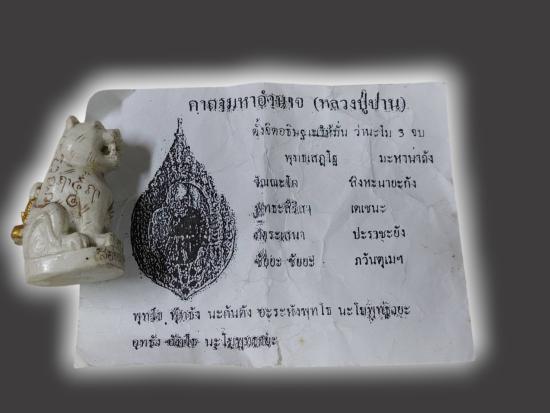 คาถามหาอำนาจ (หลวงปู่ปาน)
ตั้งจิตอธิษฐานให้มั่น ว่านะโม 3 จบ
พุทธเสฏโฐ มะหานาถัง
วัณณะโก สิงหะนายะกัง
พุทธะสิริสา เตเชนะ
เสนา ปะราชะยัง
ชัยยะ ชัยยะ ภวันตุเมฯ
พุทโธ พุทธัง นะกันตัง อะระหังพุทโธ นะโมพุทธายะ
นะโมพุทธายะ